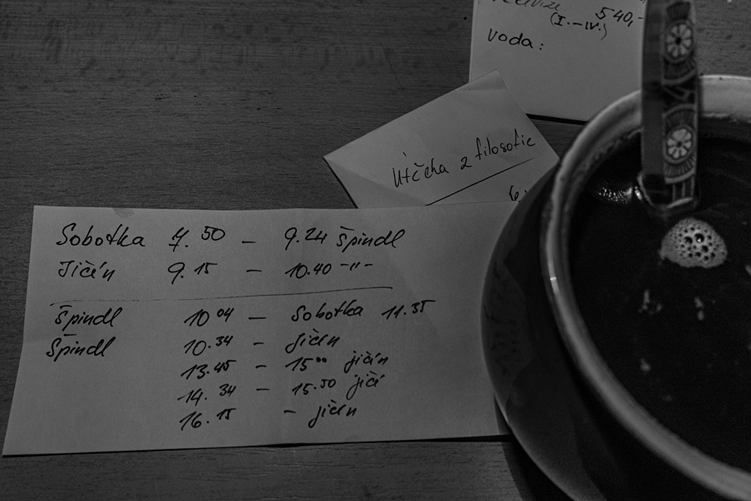 540,-
(I.-IV.)
voda:
Útěcha z filosofie
6.
Sobotka 7.50 - 9.24 Špindl
Jičín 9.15 - 10.40 -"-
Špindl 10 04 - Sobotka 11.35
Špindl 10.34 - Jičín
13.45 - 15 00 Jičín
14.34 - 15.50 Jičí
16.15 - Jičín